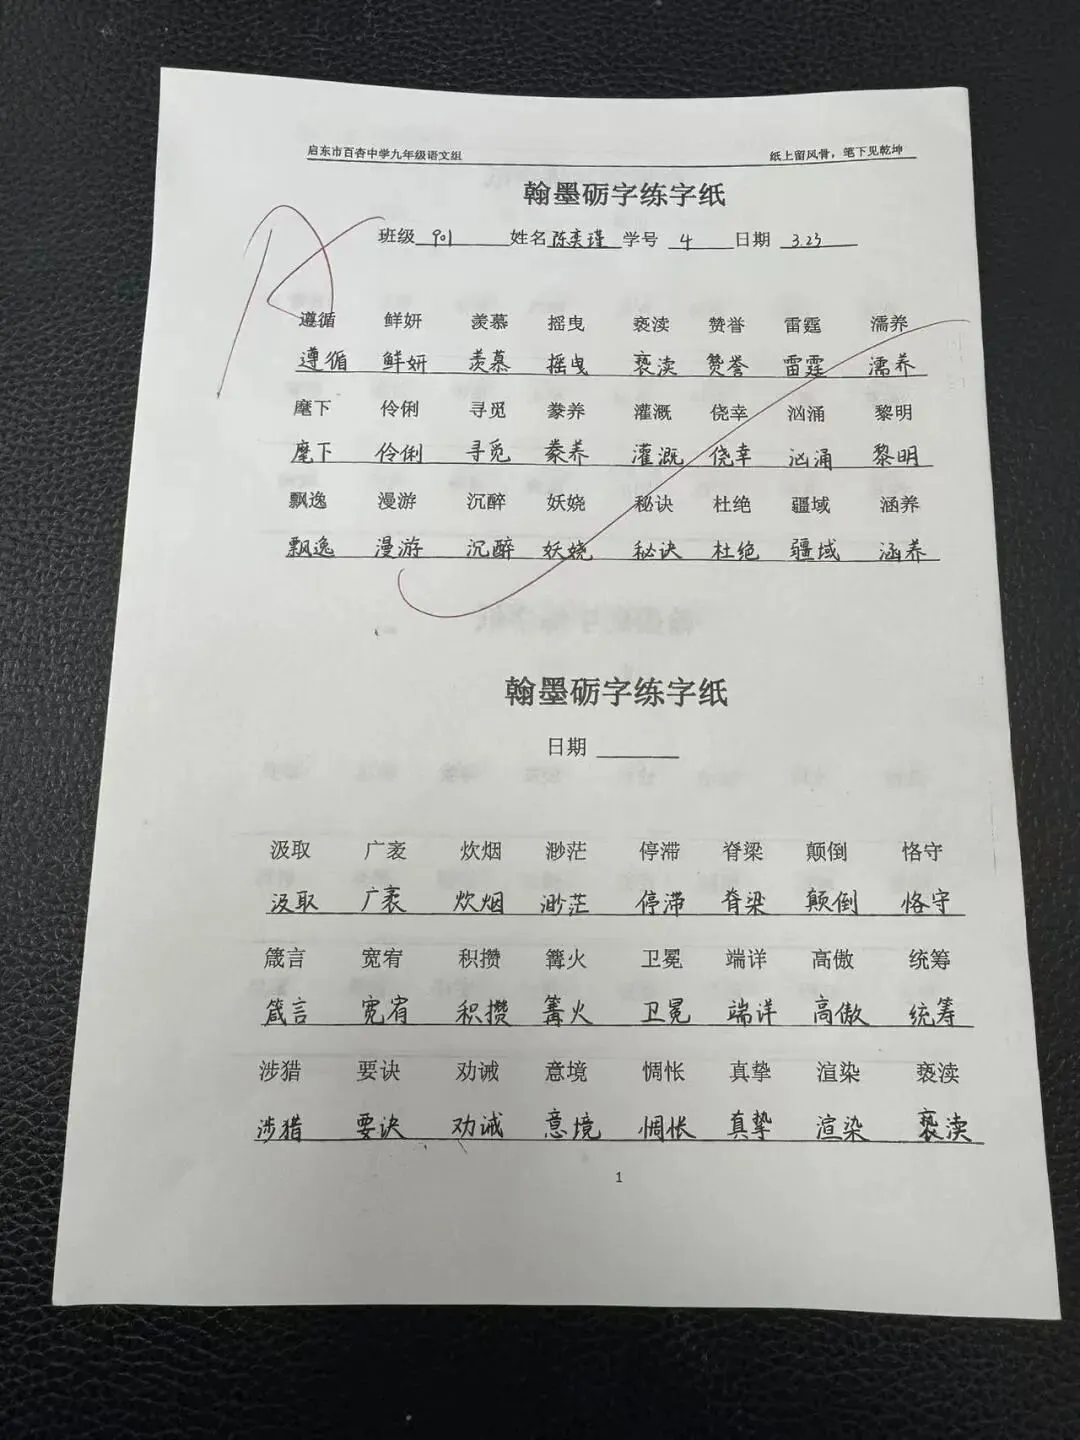 启东市百杏中学九年级语文组 纸上留风骨，笔下见乾坤
翰墨砺字练字纸
班级 901 姓名 陈奕瑾 学号 4 日期 3.23
遵循 鲜妍 羡慕 摇曳 亵渎 赞誉 雷霆 濡养
遵循 鲜妍 羡慕 摇曳 亵渎 赞誉 雷霆 濡养
麾下 伶俐 寻觅 豢养 灌溉 侥幸 汹涌 黎明
麾下 伶俐 寻觅 豢养 灌溉 侥幸 汹涌 黎明
飘逸 漫游 沉醉 妖娆 秘诀 杜绝 疆域 涵养
飘逸 漫游 沉醉 妖娆 秘诀 杜绝 疆域 涵养
翰墨砺字练字纸
日期
汲取 广袤 炊烟 渺茫 停滞 脊梁 颠倒 恪守
汲取 广袤 炊烟 渺茫 停滞 脊梁 颠倒 恪守
箴言 宽宥 积攒 篝火 卫冕 端详 高傲 统筹
箴言 宽宥 积攒 篝火 卫冕 端详 高傲 统筹
涉猎 要诀 劝诫 意境 惆怅 真挚 渲染 亵渎
涉猎 要诀 劝诫 意境 惆怅 真挚 渲染 亵渎
1